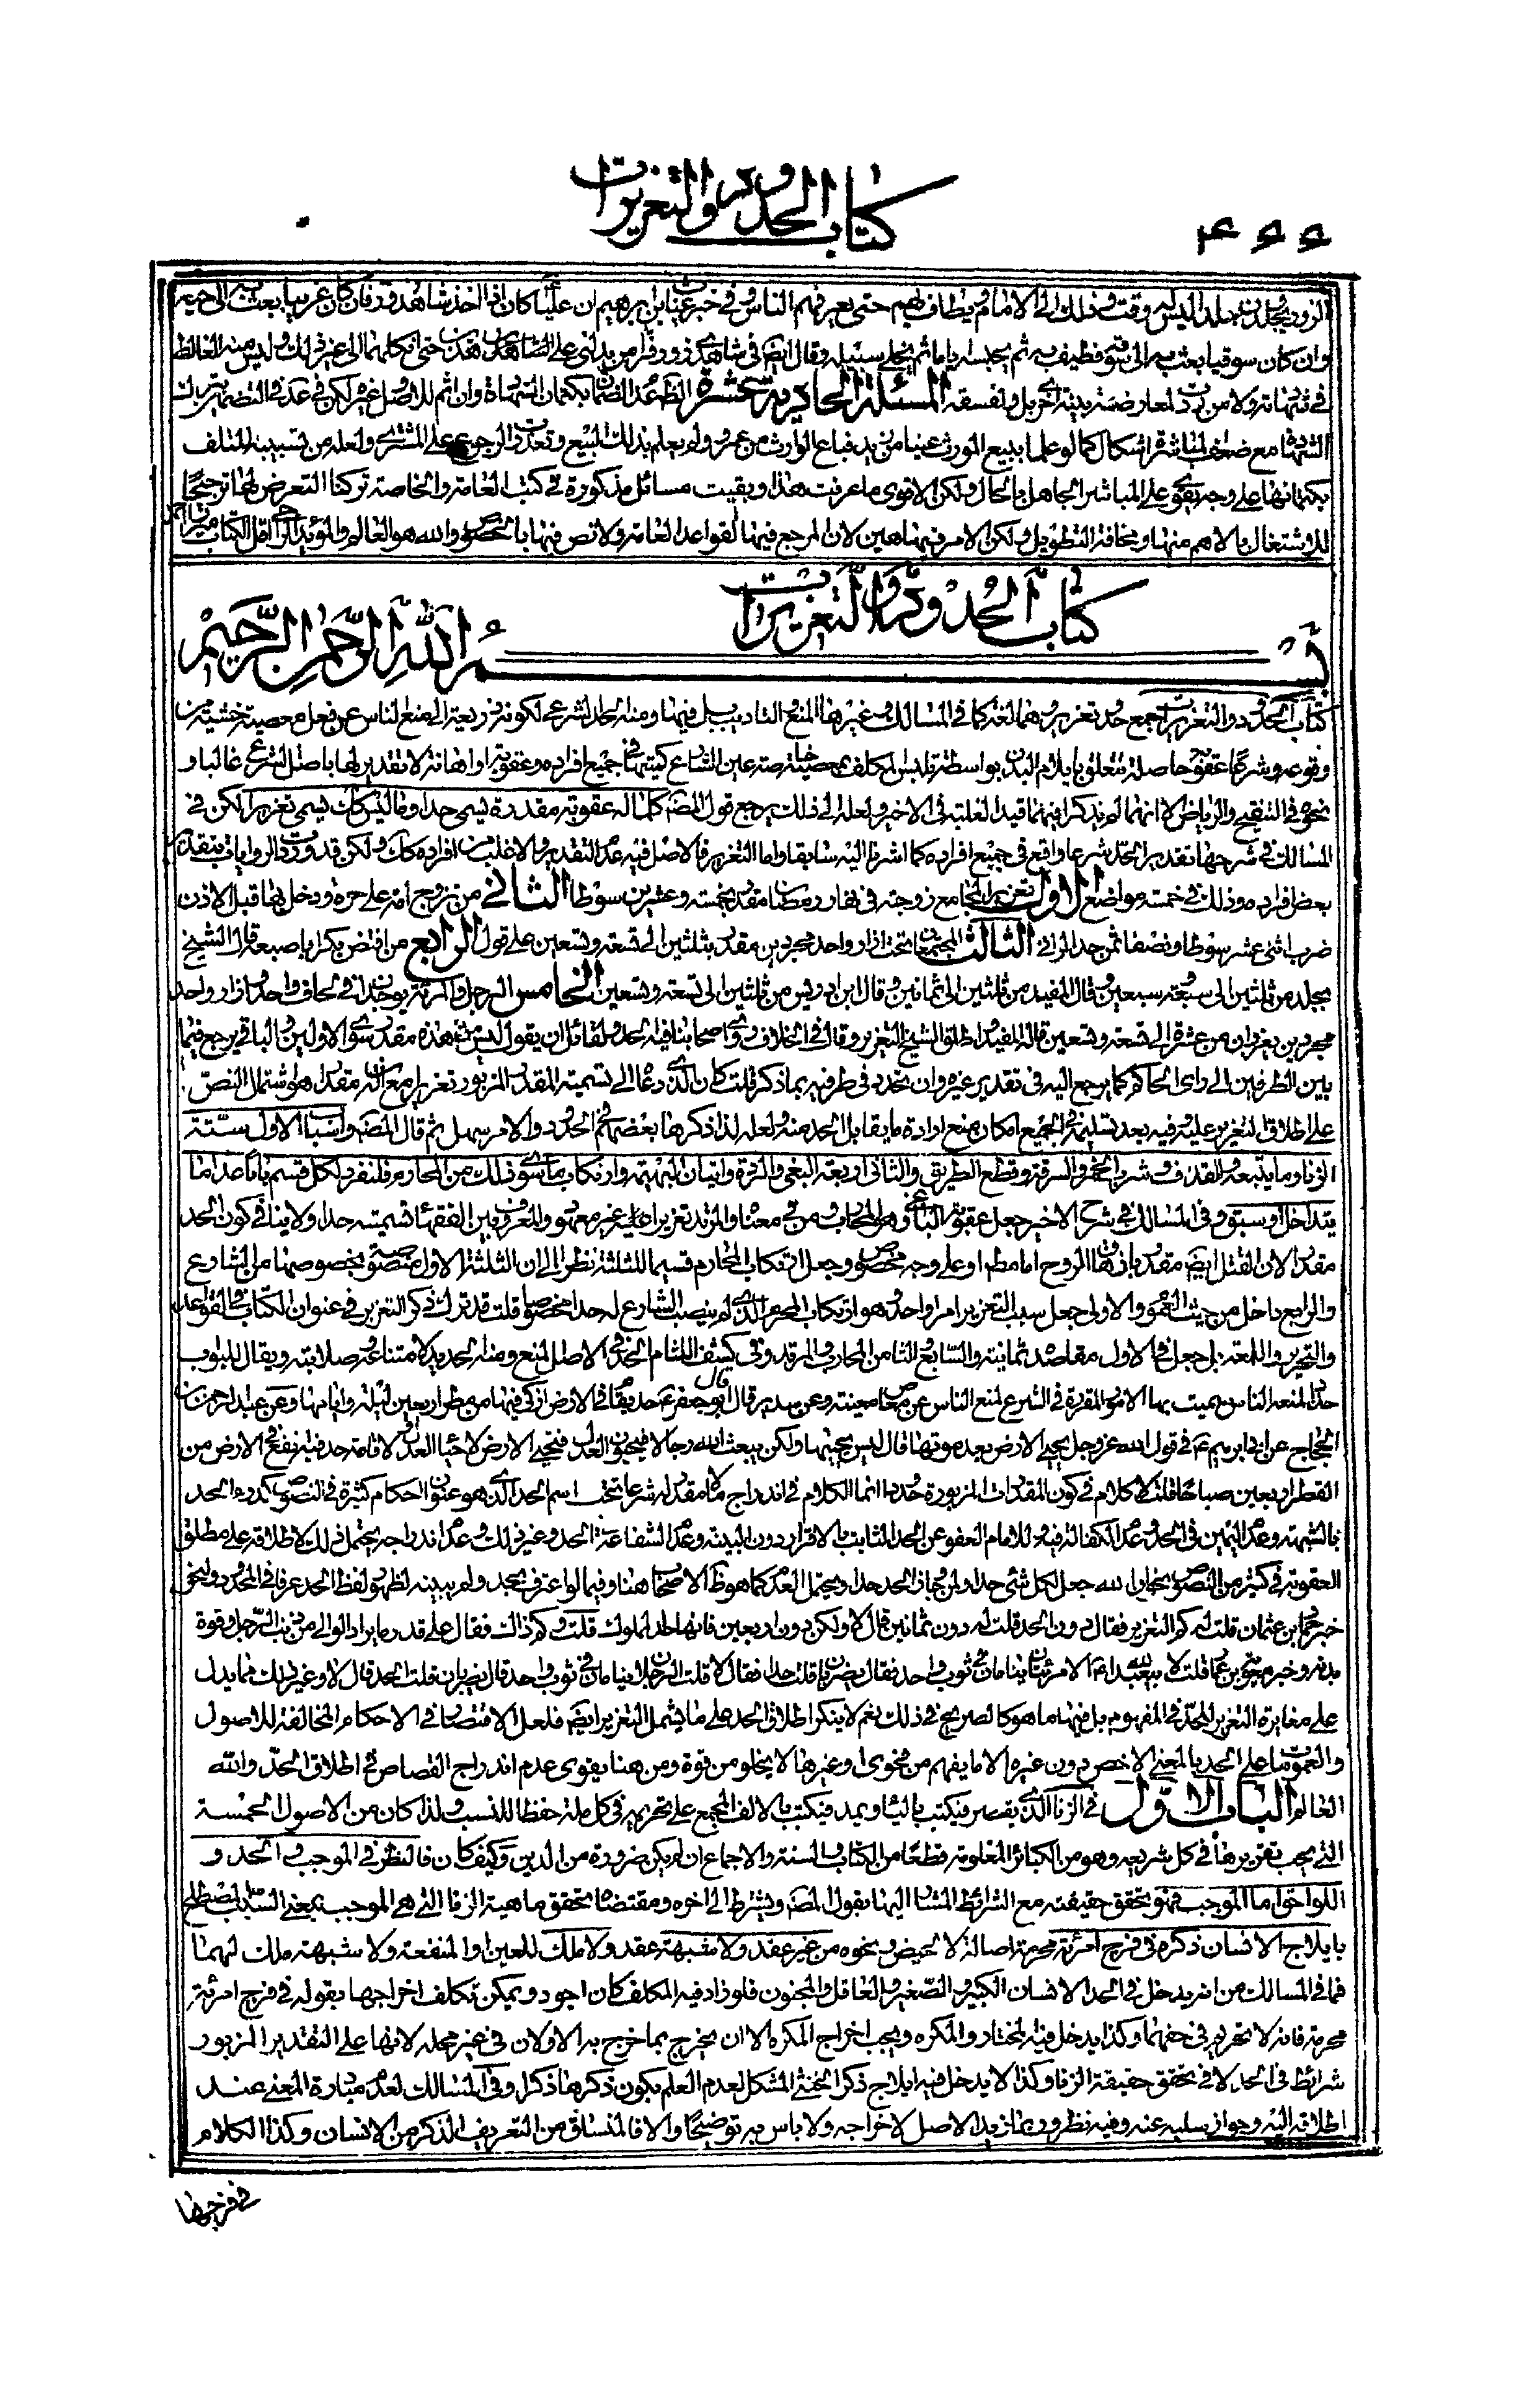 كتاب الحدود والتعزيرات
الزور يجلدون جلدا ليس له وقت وذلك الى الامام ويطاف بهم حتى يعرفهم الناس وفي خبر غياث بن ابرهيم ان عليا كان اذا اخذ شاهد زور فان كان غريبا بعث به الى حيه
وان كان سوقيا بعث به الى سوقه فطيف به ثم يحبسه اياما ثم يخلى سبيله وقال ايضا في شاهدى زور
المسئلة الحادية عشرة
بكتمانهما على وجه يقوى على المباشر الجاهل بالحال ولكن الاقوى ما عرفت هذا وبقيت مسائل مذكورة في كتب العامة والخاصة تركنا التعرض لها ترجيحا
للاشتغال بالاهم منها ومخافة التطويل ولكن الامر فيها هين لان المرجع فيها القواعد العامة ولا نص فيها بالخصوص والله هو العالم والمؤيد
كتاب الحدود والتعزيرات
بسم الله الرحمن الرحيم
كتاب الحدود والتعزيرات جمع حد وتعزير وهما لغة كما في المسالك وغيرها المنع والتاديب بل قيل فيهما ومنه الحد الشرعي لكونه ذريعة الى منع الناس عن فعل معصية خشية من
وقوعه وشرعا عقوبة خاصة متعلق بايلام البدن بواسطة تلبس المكلف بمعصية خاصة عين الشارع كميتها في جميع افراده وعقوبة او اهانة لا تقدير لها باصل الشرع غالبا و
نحوه في التنقيح والرياض الا انهما لم يذكرا فيهما قيد الغلبة في الاخير ولعله الى ذلك يرجع قول المصنف كلما له عقوبة مقدرة يسمى حدا وما ليس كك يسمى تعزيرا لكن في
المسالك في شرحها تقدير الحد شرعا واقع في جميع افراده كما اشرنا اليه سابقا واما التعزير فالاصل فيه عدم التقدير والاغلب من افراده كك ولكن قد وردت الروايات بتقدير
بعض افراده وذلك في خمسة مواضع الاول تعزير المجامع زوجته في نهار رمضان مقدر بخمسة وعشرين سوطا الثاني من تزوج امة على حرة ودخل بها قبل الاذن
ضرب اثنى عشر سوطا ونصفا ثمن حد الزاني الثالث المجتمعان تحت ازار واحد مجردين مقدر بثلثين الى تسعة وتسعين على قول الرابع من افتض بكرا باصبعه قال الشيخ
يجلد من ثلثين الى سبعة وسبعين وقال المفيد من ثلثين الى ثمانين وقال ابن ادريس من ثلثين الى تسعة وتسعين الخامس الرجل والمرئة يوجدان في لحاف واحد وازار واحد
مجردين يعزران من عشرة الى تسعة وتسعين قاله المفيد واطلق الشيخ التعزير وقال في الخلاف روى اصحابنا فيه الحد ولقائل ان يقول ليس من هذه مقدر سوى الاولين والباقي يرجع فيما
بين الطرفين الى راى الحاكم كما يرجع اليه في تقدير غيره وان تحدد في طرفيه بما ذكر قلت كان الذي دعاه الى تسمية المقدر المزبور تعزيرا مع ان له مقدرا هو اشتمال النص
على اطلاق التعزير عليه وفيه بعد تسليمه في الجميع امكان منع ارادة ما يقابل الحد منه ولعله لذا ذكرها بعضهم في الحدود والامر سهل ثم قال المصنف واسباب الاول ستة
الزنا وما يتبعه والقذف وشرب الخمر والسرقة وقطع الطريق والثاني اربعة البغي والردة واتيان البهيمة وارتكاب ما سوى ذلك من المحارم فلنفرد لكل قسم بابا عدا ما
يتداخل او سبق وفي المسالك في شرح الاخير جعل عقوبة الباغي وهو المحارب ومن في معناه والمرتد تعزيرا غير معهود والمعروف بين الفقهاء تسميته حدا ولا ينافي كون الحد
مقدرا لان القتل ايضا مقدر بازهاق الروح اما مطلقا او على وجه مخصوص وجعل ارتكاب المحارم قسيما للثلثة نظرا الى ان الثلثة الاول منصوصة بخصوصها من الشارع
والرابع داخل من حيث العموم والاولى جعل سبب التعزير امرا واحدا وهو ارتكاب المحرم الذي لم ينصب الشارع له حدا مخصوصا قلت قد ترك ذكر التعزير في عنوان الكتاب في القواعد
والتحرير واللمعة بل جعل في الاول مقاصد ثمانية والسابع الثامن المحارب والمرتد وفي كشف اللثام الحد في الاصل المنع ومنه الحديد لامتناعه وصلابته ويقال للبواب
حداد لمنعه الناس سميت بها الامور المقررة في الشرع لمنع الناس عن معاص معينة وعن سدير قال قال ابو جعفر ع حد يقام في الارض ازكى فيها من مطر اربعين ليلة وايامها وعن عبد الرحمن بن
الحجاج عن ابي ابرهيم ع في قول الله عز وجل يحيى الارض بعد موتها قال ليس يحييها ولكن يبعث الله رجالا فيحيون العدل فتحيى الارض لاحياء العدل لاقامة حد فيه انفع في الارض من
القطر اربعين صباحا قلت لا كلام في كون المقدرات المزبورة حدودا انما الكلام في اندراج ما لا مقدر له شرعا تحت اسم الحد الذي هو عنوان احكام كثيرة في النصوص كدرء الحد
بالشبهة وعدم اليمين في الحد وعدم الكفالة فيه وللامام العفو عن الحد الثابت بالاقرار دون البينة وعدم الشفاعة في الحد وغير ذلك وعدم اندراجه يحتمل ذلك لاطلاقه على مطلق
العقوبة في كثير من النصوص نحو ان الله جعل لكل شئ حدا ولمن جاوز الحد حدا ويحتمل العدم كما هو ظ الاصحاب هنا وفيما لو اعترف بحد ولم يبينه لظهور لفظ الحد عرفا في المحدود ولنحو
خبر حماد بن عثمان قلت له كم التعزير فقال دون الحد قلت له دون ثمانين قال لا ولكن دون اربعين فانها حد المملوك قلت وكم ذاك فقال على قدر ما يراه الوالي من ذنب الرجل وقوة
بدنه وخبر معوية بن عمار قلت لابي عبد الله ع الامرئتان ينامان في ثوب واحد فقال يضربان قلت حدا فقال لا قلت الرجلان ينامان في ثوب واحد قال يضربان قلت الحد قال لا وغير ذلك مما يدل
على مغايرة التعزير للحد في المفهوم بل فيها ما هو كالصريح في ذلك نعم لا ينكر اطلاق الحد على ما يشمل التعزير ايضا فلعل الاقتصار في الاحكام المخالفة للاصول
والعمومات على الحد بالمعنى الاخص دون غيره الا ما يفهم من فحوى او غيرها لا يخلو من قوة ومن هنا يقوى عدم اندراج القصاص في اطلاق الحد والله
العالم الباب الاول في الزنا الذي يقصر فيكتب بالياء ويمد فيكتب بالالف المجمع على تحريمه في كل ملة حفظا للنسب ولذا كان من الاصول الخمسة
التي يجب تقريرها في كل شريعة وهو من الكبائر المعلومة قطعا من الكتاب والسنة والاجماع ان لم يكن ضرورة من الدين وكيف كان فالنظر في الموجب والحد و
اللواحق اما الموجب فهو يتحقق حقيقته مع الشرائط المشار اليها بقول المصنف ويشترط الى اخره ومقتضاه تحقق ماهية الزنا التي هي الموجب بمعنى السبب المصطلح
بايلاج الانسان ذكره في فرج امرئة محرمة اصالة لا لحيض ونحوه من غير عقد ولا شبهة عقد ولا ملك للعين او المنفعة ولا شبهة ملك لهما
فما في المسالك من انه يدخل في الحد الانسان الكبير والصغير والعاقل والمجنون فلو زاد فيه المكلف كان اجود ويمكن تكلف اخراجهما بقوله في فرج امرئة
محرمة فانه لا تحريم في حقهما وكذا يدخل فيه المختار والمكره ويجب اخراج المكره الا ان يخرج بما خرج به الاولان في غير محله لانها على التقدير المزبور
شرائط في الحد لا في تحقق حقيقة الزنا وكذا لا يدخل فيه ايلاج ذكر الخنثى المشكل لعدم العلم بكون ذكرها ذكرا وفي المسالك لعدم تبادر المعنى عند
اطلاقه اليه وجواز سلبه عنه وفيه نظر وربما زيد الاصل لاخراجه ولا باس به توضيحا والا فالمنساق من التعريف الذكر من الانسان وكذا الكلام
في فرجها